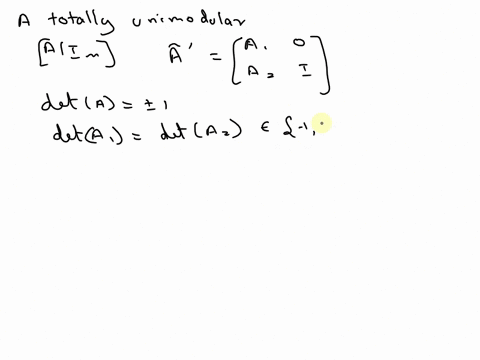 A totally unimodular
[A|Im] Ã' = [A₁ 0
A₂ I]
det(A) = ±1
det(A₁) = det(A₂) ∈ {-1,